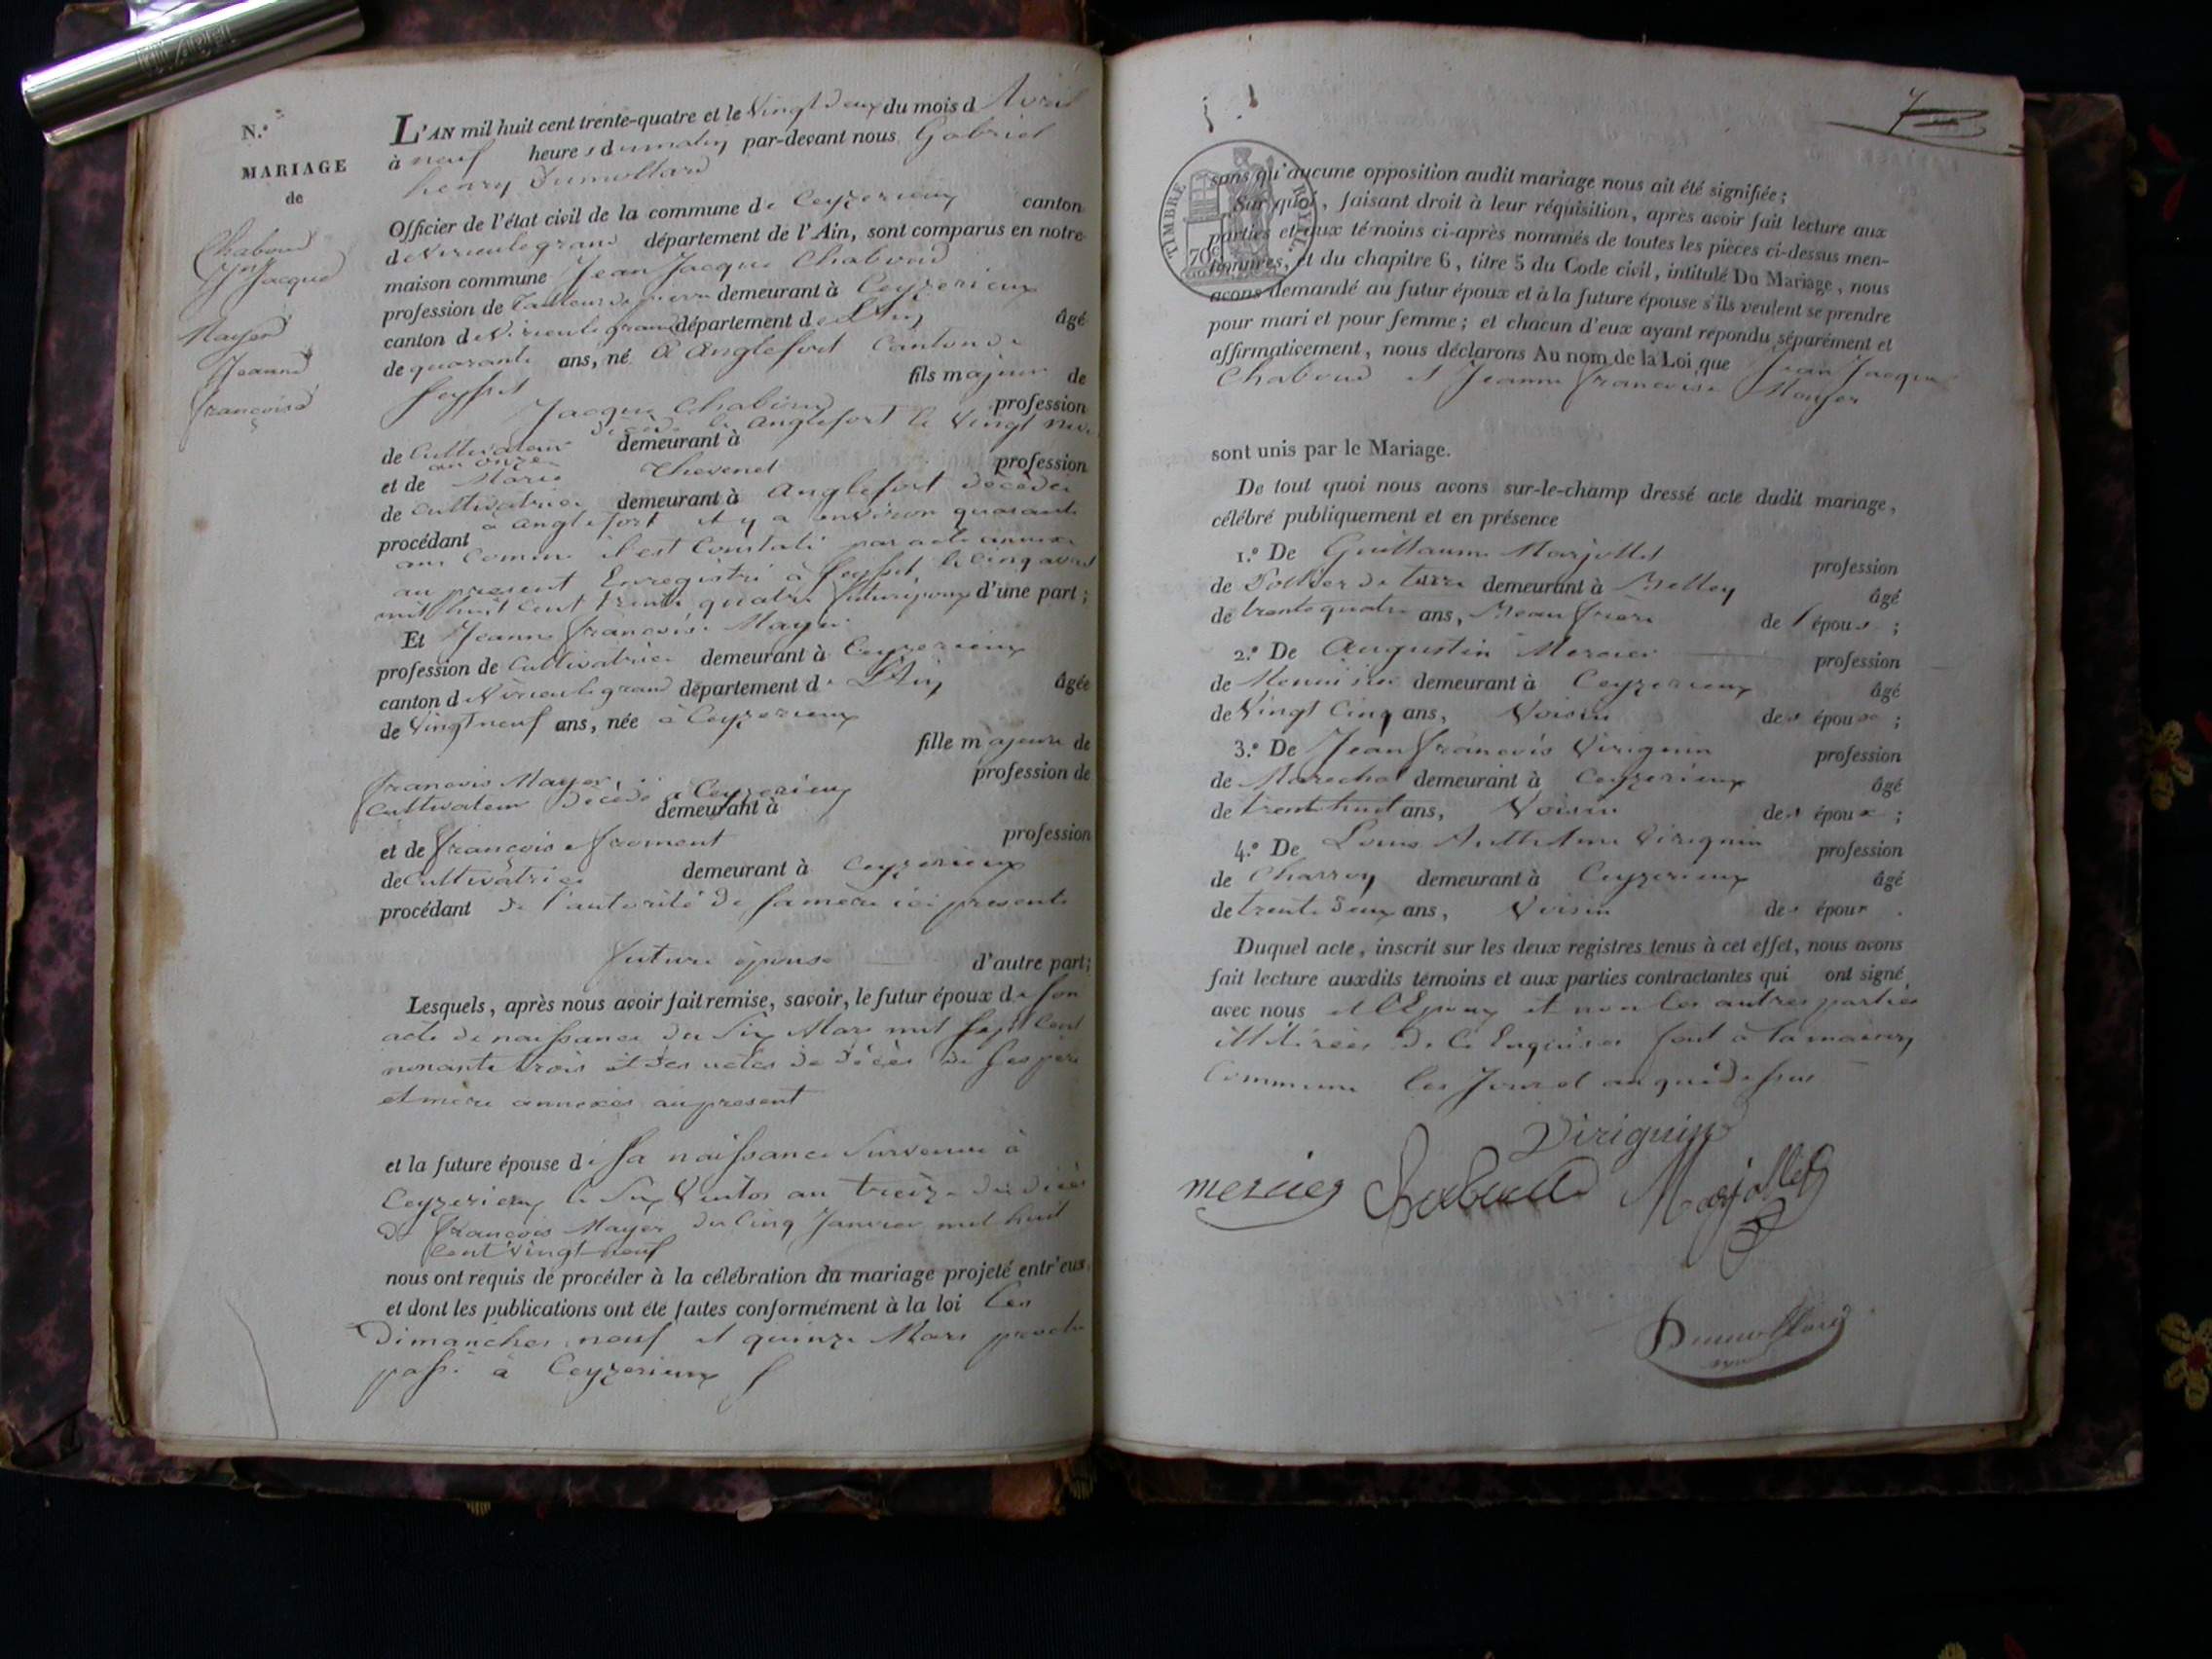 N.o
MARIAGE
de
Chaboud
Jn Jacque
Mayer
Jeanne
françoise
L'AN mil huit cent trente-quatre et le Vingt deux du mois d Avril
à neuf heures du matin par-devant nous Gabriel
henry Dumollard
Officier de l'état civil de la commune de Ceyzerieux canton
de Virieu le grand département de l'Ain, sont comparus en notre
maison commune Jean Jacque Chaboud
profession de Tailleur de pierre demeurant à Ceyzerieux
canton de Virieu le grand département de L'Ain âgé
de quarante ans, né à Anglefort Canton de
Seyssel fils majeur de
Jacque Chaboud profession
de Cultivateur décédé à Anglefort le Vingt
an onze demeurant à
et de Marie Thevenet profession
de Cultivatrice demeurant à Anglefort décédée
à Anglefort il y a environ quarante
procédant
ans comme il est Constaté par acte annexé
au present Enregistré à Seyssel le cinq avril
mil huit cent trente quatre futur époux d'une part;
Et Jeanne françoise Mayer
profession de Cultivatrice demeurant à Ceyzerieux
canton de Virieu le grand département de L'Ain âgée
de Vingt neuf ans, née à Ceyzerieux
fille majeure de
françois Mayer profession de
Cultivateur décédé à Ceyzerieux
demeurant à
et de françoise froment profession
de Cultivatrice demeurant à Ceyzerieux
procédant de l'autorité de sa mère ici presente
future épouse d'autre part;
Lesquels, après nous avoir fait remise, savoir, le futur époux de son
acte de naissance du Six Mars mil sept cent
nonante trois et des actes de décès de ses père
et mère annexés au present
et la future épouse de sa naissance survenue à
Ceyzerieux le Six Ventos an treize du décès
de françois Mayer du Cinq Janvier mil huit
cent vingt neuf
nous ont requis de procéder à la célébration du mariage projeté entr'eux,
et dont les publications ont été faites conformément à la loi les
Dimanches neuf et quinze Mars
passé à Ceyzerieux
7
TIMBRE ROYAL.
70c
sans qu'aucune opposition audit mariage nous ait été signifiée;
Sur quoi, faisant droit à leur réquisition, après avoir fait lecture aux
parties et aux témoins ci-après nommés de toutes les pièces ci-dessus men-
tionnées, et du chapitre 6, titre 5 du Code civil, intitulé Du Mariage, nous
avons demandé au futur époux et à la future épouse s'ils veulent se prendre
pour mari et pour femme; et chacun d'eux ayant répondu séparément et
affirmativement, nous déclarons Au nom de la Loi que Jean Jacque
Chaboud et Jeanne françoise Mayer
sont unis par le Mariage.
De tout quoi nous avons sur-le-champ dressé acte dudit mariage,
célébré publiquement et en présence
1.o De Guillaume Marjollet profession
de Pottier de terre demeurant à Belley âgé
de trente quatre ans, Beau frère de l'époux ;
2.o De Augustin Mercier profession
de Menuisier demeurant à Ceyzerieux âgé
de Vingt Cinq ans, Voisin des époux ;
3.o De Jean françois Virignin profession
de Marechal demeurant à Ceyzerieux âgé
de trente huit ans, Voisin des époux ;
4.o De Louis Anthelme Virignin profession
de Charron demeurant à Ceyzerieux âgé
de trente deux ans, Voisin des époux .
Duquel acte, inscrit sur les deux registres tenus à cet effet, nous avons
fait lecture auxdits témoins et aux parties contractantes qui ont signé
avec nous et l'Epoux et non les autres parties
illitérées de ce Enquises fait à la maison
Commune les Jour et an que dessus
Virignin
mercier Chaboud Marjollet
Dumollard